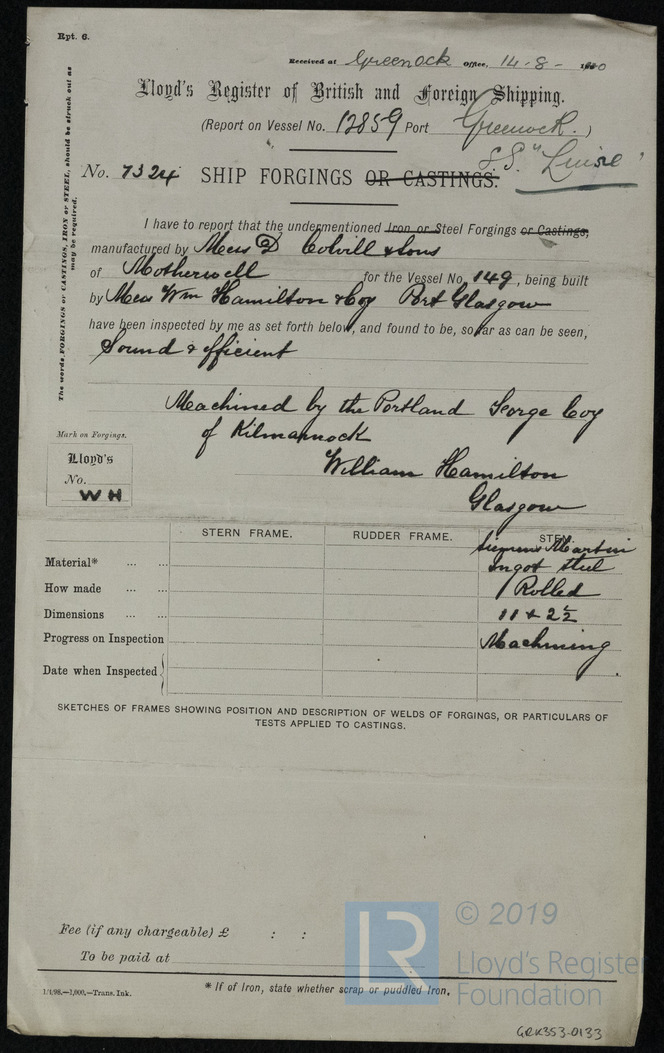 Rpt. 6.
Received at Greenock Office, 14-8-
Lloyd's Register of British and Foreign Shipping.
(Report on Vessel No. 12859 Port Greenock.)
S.S. "Luise"
No. 7324 SHIP FORGINGS OR CASTINGS.
The words FORGINGS or CASTINGS, IRON or STEEL, should be struck out as
may be required.
I have to report that the undermentioned Iron or Steel Forgings or Castings,
manufactured by Mess D Colvill & Sons
of Motherwell for the Vessel No. 149, being built
by Mess Wm Hamilton & Coy Port Glasgow
have been inspected by me as set forth below, and found to be, so far as can be seen,
Sound & efficient
Machined by the Portland Forge Coy
of Kilmarnock
William Hamilton
Glasgow
Mark on Forgings.
Lloyd's
No.
WH
STERN FRAME. RUDDER FRAME. STEM.
Material* ... ... Siemens Martin
ingot steel
How made ... ... Rolled
Dimensions ... ... 11 x 2½
Progress on Inspection Machining
Date when Inspected
SKETCHES OF FRAMES SHOWING POSITION AND DESCRIPTION OF WELDS OF FORGINGS, OR PARTICULARS OF
TESTS APPLIED TO CASTINGS.
Fee (if any chargeable) £ : :
To be paid at
* If of Iron, state whether scrap or puddled Iron.
1/4/98.—1,000.—Trans. Ink.
LR
© 2019
Lloyd's Register
Foundation
GRK353-0133